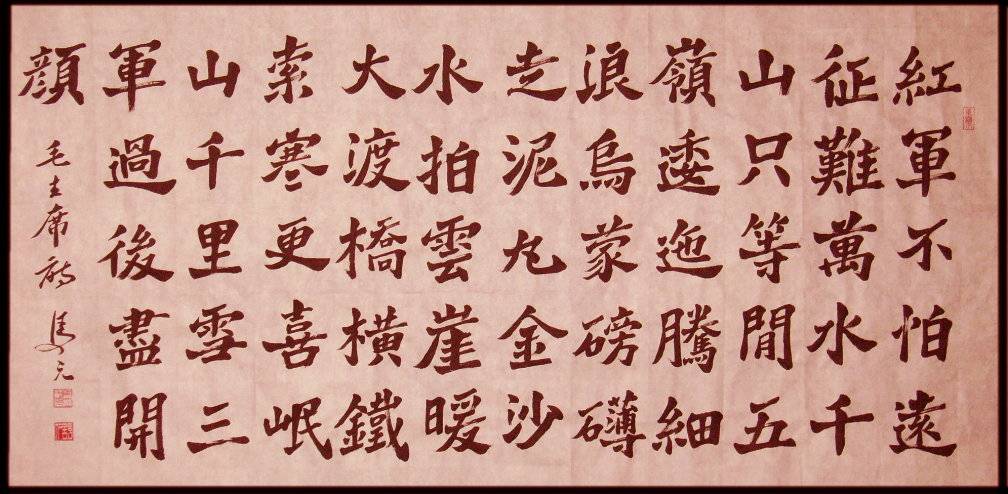 紅軍不怕遠
征難萬水千
山只等閒五
嶺逶迤騰細
浪烏蒙磅礴
走泥丸金沙
水拍雲崖暖
大渡橋橫鐵
索寒更喜岷
山千里雪三
軍過後盡開
顔
毛主席詩